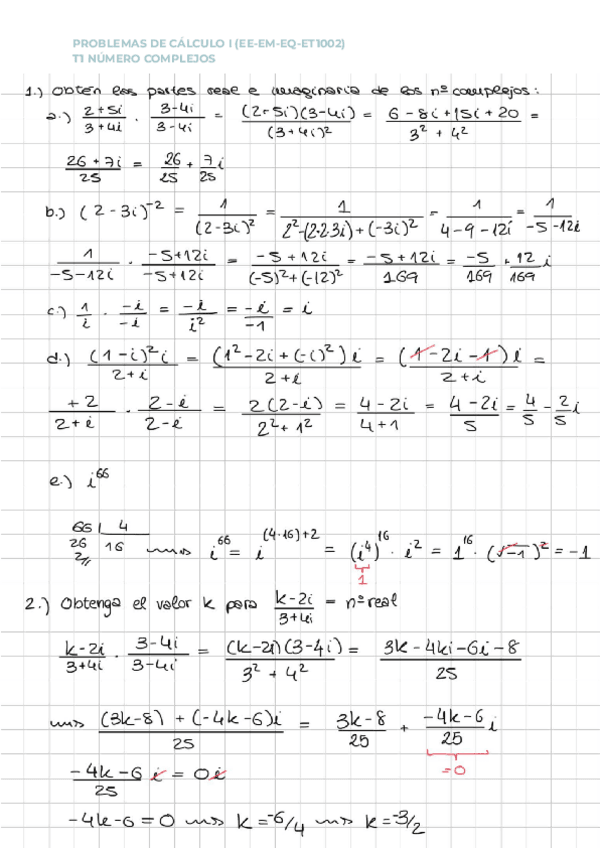 PROBLEMAS DE CÁLCULO I (EE-EM-EQ-ET1002)
T1 NÚMERO COMPLEJOS
1.) Obtén las partes real e imaginaria de los nº complejos:
a.) (2+5i)/(3+4i) · (3-4i)/(3-4i) = ((2+5i)(3-4i))/(3+4i)² = (6-8i+15i+20)/(3²+4²) =
(26+7i)/25 = 26/25 + 7/25 i
b.) (2-3i)⁻² = 1/(2-3i)² = 1/(2²-(2·2·3i)+(-3i)²) = 1/(4-9-12i) = 1/(-5-12i)
1/(-5-12i) · (-5+12i)/(-5+12i) = (-5+12i)/((-5)²+(-12)²) = (-5+12i)/169 = -5/169 + 12/169 i
c.) 1/i · -i/-i = -i/i² = -i/-1 = i
d.) ((1-i)²i)/(2+i) = ((1²-2i+(-i)²)i)/(2+i) = ((1-2i-1)i)/(2+i) =
+2/(2+i) · (2-i)/(2-i) = 2(2-i)/(2²+1²) = (4-2i)/(4+1) = (4-2i)/5 = 4/5 - 2/5 i
e.) i⁶⁶
66 | 4
26 16 ⇝ i⁶⁶ = i⁽⁴·¹⁶⁾⁺² = (i⁴)¹⁶ · i² = 1¹⁶ · (√-1)² = -1
2//
1
2.) Obtenga el valor k para (k-2i)/(3+4i) = nº real
(k-2i)/(3+4i) · (3-4i)/(3-4i) = ((k-2i)(3-4i))/(3²+4²) = (3k-4ki-6i-8)/25
⇝ ((3k-8)+(-4k-6)i)/25 = (3k-8)/25 + (-4k-6)/25 i
=0
(-4k-6)/25 i = 0i
-4k-6=0 ⇝ k=-6/4 ⇝ k=-3/2